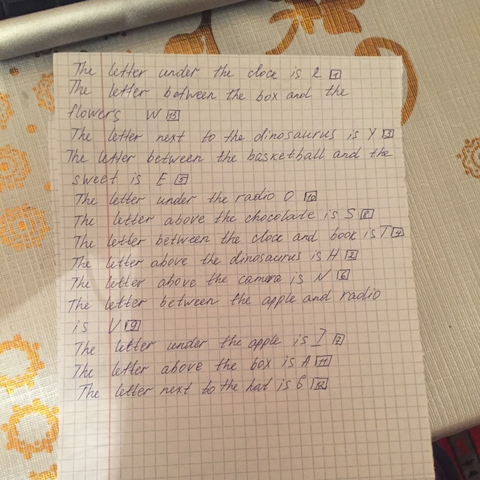 The letter under the clock is R 1
The letter between the box and the
flowers W 13
The letter next to the dinosaurus is Y 3
The letter between the basketball and the
sweet is E 5
The letter under the radio O 10
The letter above the chocolate is S 8
The letter between the clock and book is T 4
The letter above the dinosaurus is H 2
The letter above the camera is N 6
The letter between the apple and radio
is V 9
The letter under the apple is I 7
The letter above the box is A 11
The letter next to the hat is G 12